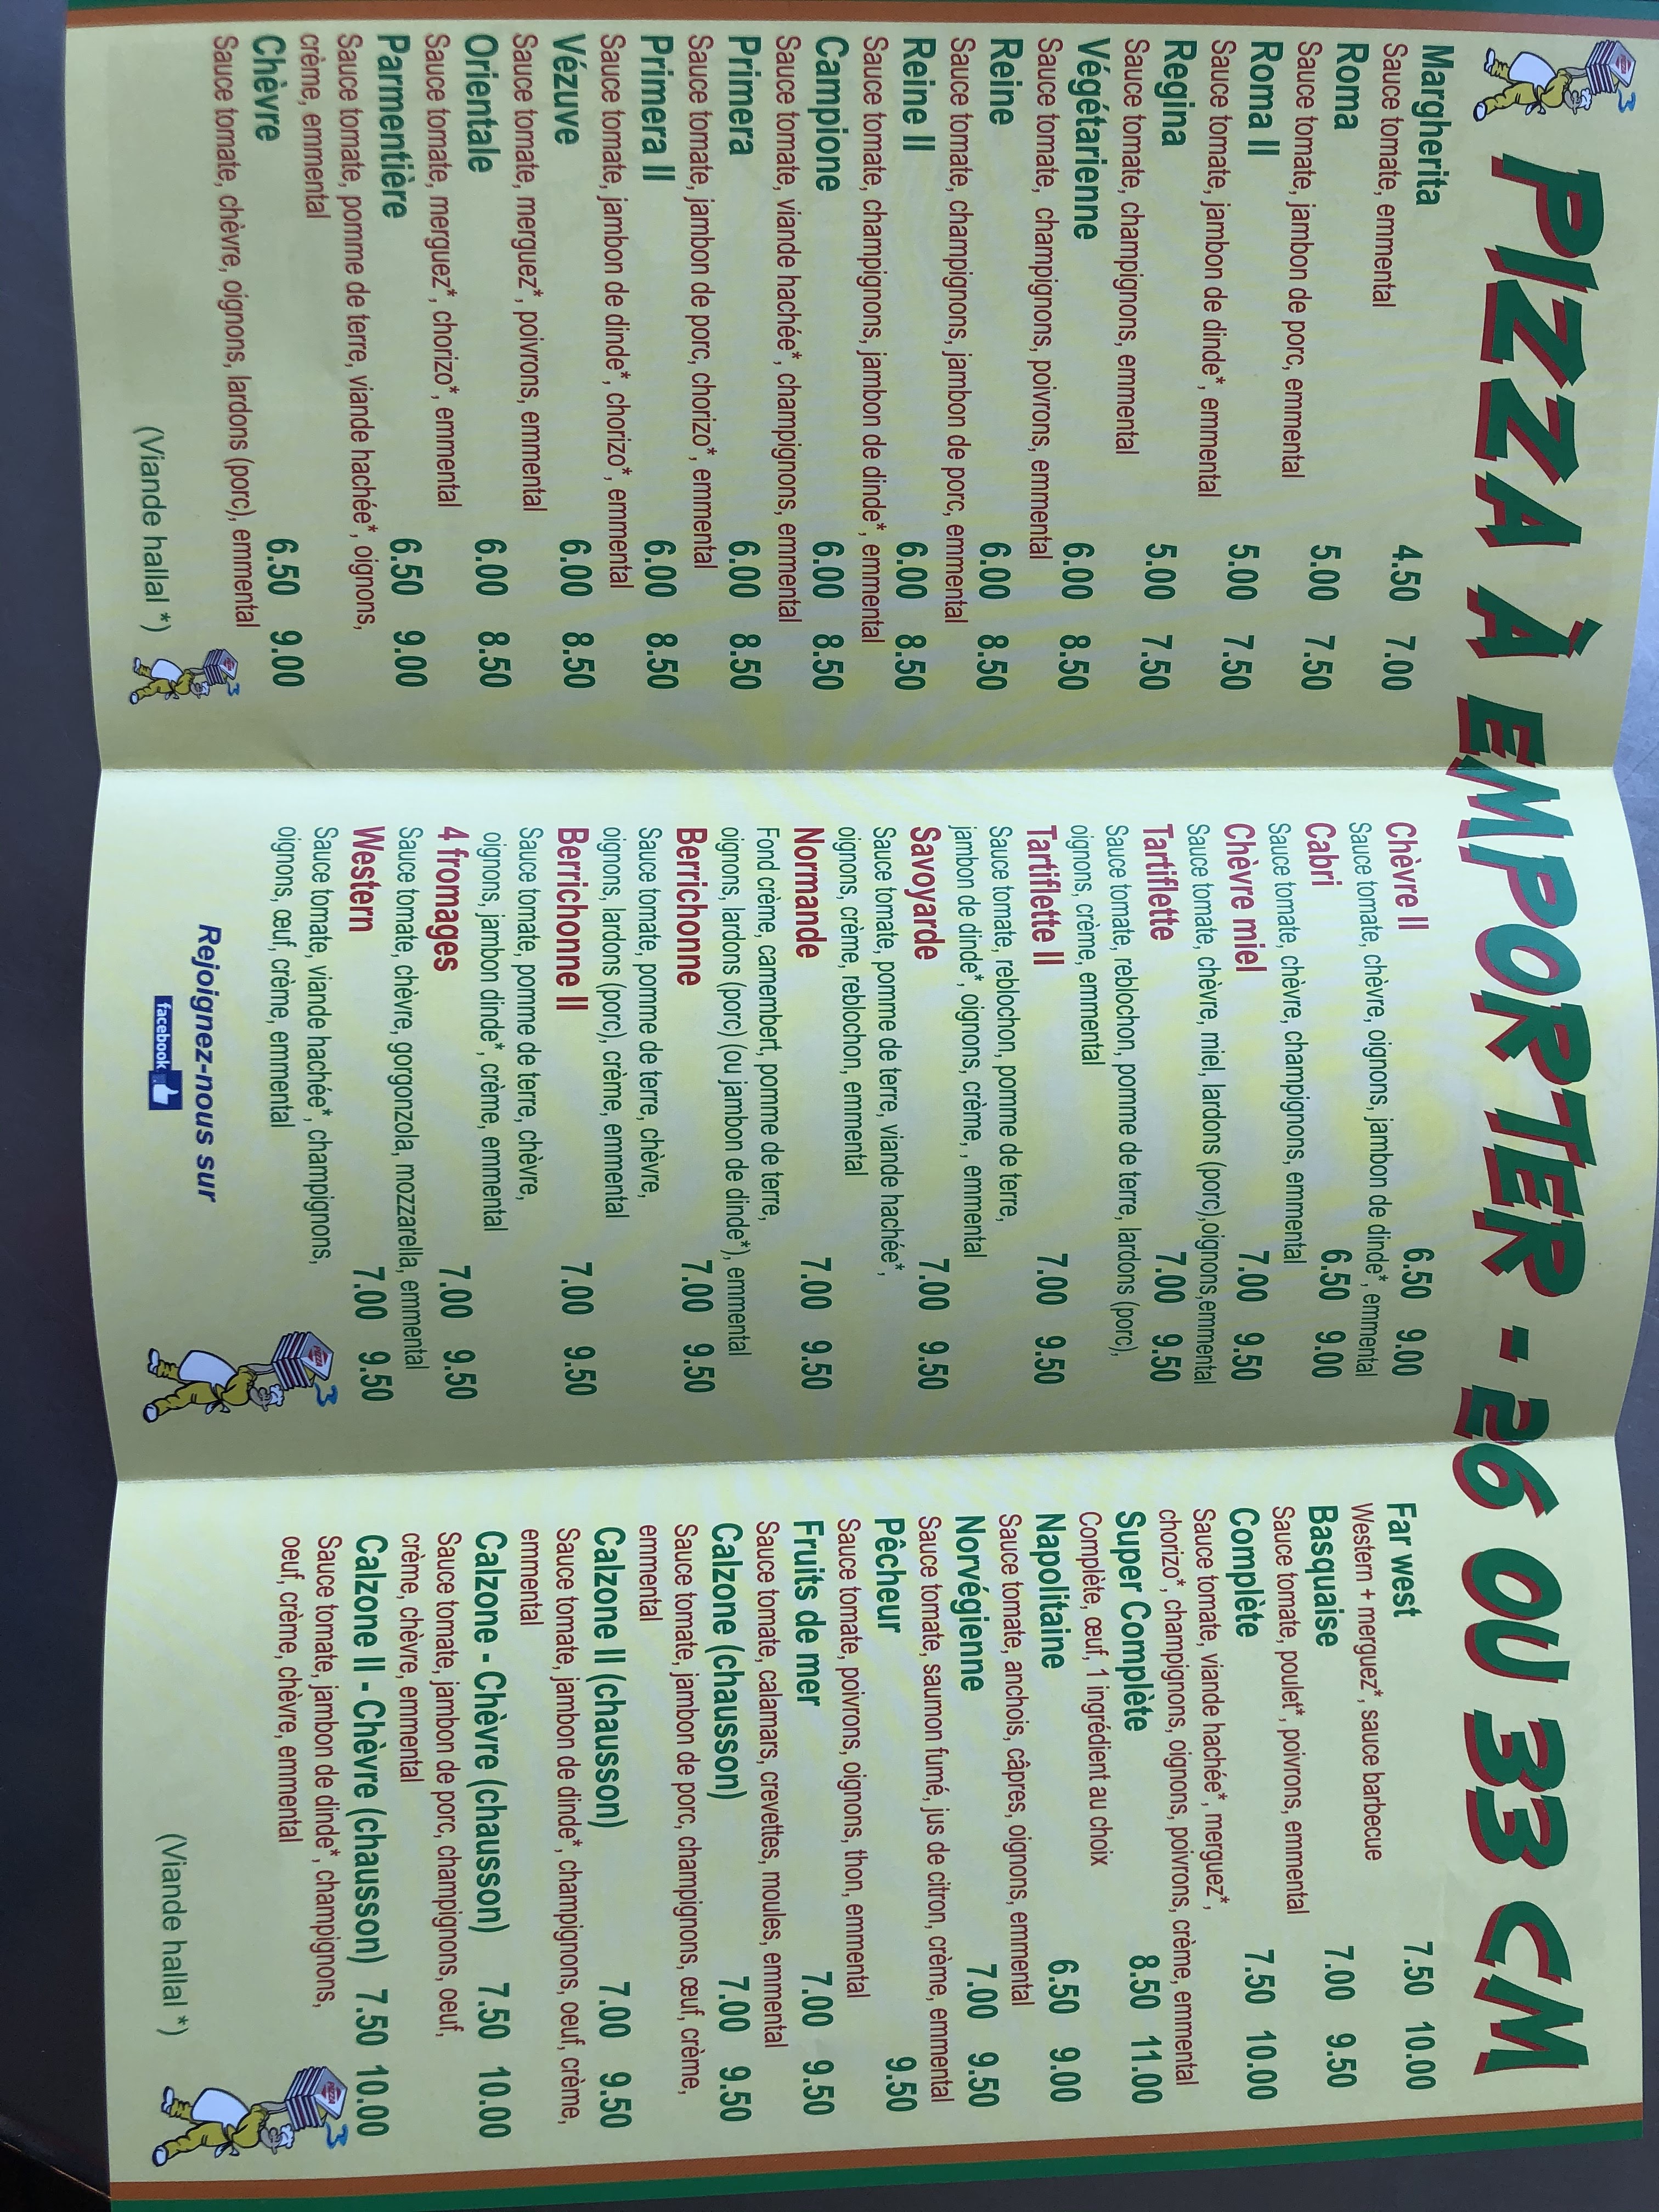 PIZZA À EMPORTER - 26 OU 33 CM
Margherita 4.50 7.00
Sauce tomate, emmental
Roma 5.00 7.50
Sauce tomate, jambon de porc, emmental
Roma II 5.00 7.50
Sauce tomate, jambon de dinde*, emmental
Regina 5.00 7.50
Sauce tomate, champignons, emmental
Végétarienne 6.00 8.50
Sauce tomate, champignons, poivrons, emmental
Reine 6.00 8.50
Sauce tomate, champignons, jambon de porc, emmental
Reine II 6.00 8.50
Sauce tomate, champignons, jambon de dinde*, emmental
Campione 6.00 8.50
Sauce tomate, viande hachée*, champignons, emmental
Primera 6.00 8.50
Sauce tomate, jambon de porc, chorizo*, emmental
Primera II 6.00 8.50
Sauce tomate, jambon de dinde*, chorizo*, emmental
Vézuve 6.00 8.50
Sauce tomate, merguez*, poivrons, emmental
Orientale 6.00 8.50
Sauce tomate, merguez*, chorizo*, emmental
Parmentière 6.50 9.00
Sauce tomate, pomme de terre, viande hachée*, oignons,
crème, emmental
Chèvre 6.50 9.00
Sauce tomate, chèvre, oignons, lardons (porc), emmental
(Viande hallal *)
Chèvre II 6.50 9.00
Sauce tomate, chèvre, oignons, jambon de dinde*, emmental
Cabri 6.50 9.00
Sauce tomate, chèvre, champignons, emmental
Chèvre miel 7.00 9.50
Sauce tomate, chèvre, miel, lardons (porc),oignons,emmental
Tartiflette 7.00 9.50
Sauce tomate, reblochon, pomme de terre, lardons (porc),
oignons, crème, emmental
Tartiflette II 7.00 9.50
Sauce tomate, reblochon, pomme de terre,
jambon de dinde*, oignons, crème, , emmental
Savoyarde 7.00 9.50
Sauce tomate, pomme de terre, viande hachée*,
oignons, crème, reblochon, emmental
Normande 7.00 9.50
Fond crème, camembert, pomme de terre,
oignons, lardons (porc) (ou jambon de dinde*), emmental
Berrichonne 7.00 9.50
Sauce tomate, pomme de terre, chèvre,
oignons, lardons (porc), crème, emmental
Berrichonne II 7.00 9.50
Sauce tomate, pomme de terre, chèvre,
oignons, jambon dinde*, crème, emmental
4 fromages 7.00 9.50
Sauce tomate, chèvre, gorgonzola, mozzarella, emmental
Western 7.00 9.50
Sauce tomate, viande hachée*, champignons,
oignons, œuf, crème, emmental
Rejoignez-nous sur
facebook
PIZZA
Far west 7.50 10.00
Western + merguez*, sauce barbecue
Basquaise 7.00 9.50
Sauce tomate, poulet*, poivrons, emmental
Complète 7.50 10.00
Sauce tomate, viande hachée*, merguez*,
chorizo*, champignons, oignons, poivrons, crème, emmental
Super Complète 8.50 11.00
Complète, œuf, 1 ingrédient au choix
Napolitaine 6.50 9.00
Sauce tomate, anchois, câpres, oignons, emmental
Norvégienne 7.00 9.50
Sauce tomate, saumon fumé, jus de citron, crème, emmental
Pêcheur 9.50
Sauce tomate, poivrons, oignons, thon, emmental
Fruits de mer 7.00 9.50
Sauce tomate, calamars, crevettes, moules, emmental
Calzone (chausson) 7.00 9.50
Sauce tomate, jambon de porc, champignons, œuf, crème,
emmental
Calzone II (chausson) 7.00 9.50
Sauce tomate, jambon de dinde*, champignons, oeuf, crème,
emmental
Calzone - Chèvre (chausson) 7.50 10.00
Sauce tomate, jambon de porc, champignons, oeuf,
crème, chèvre, emmental
Calzone II - Chèvre (chausson) 7.50 10.00
Sauce tomate, jambon de dinde*, champignons,
oeuf, crème, chèvre, emmental
(Viande hallal *)
PIZZA